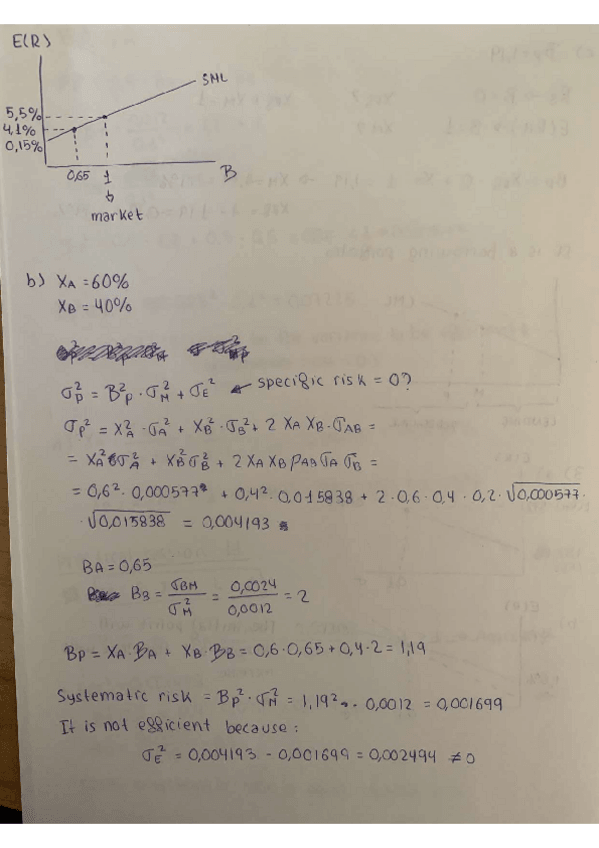 E(R)
SML
5,5%
4,1%
0,15%
0,65 1 B
market
b) XA = 60%
XB = 40%
σP² = BP² · σM² + σE² ← specific risk = 0?
σP² = XA² · σA² + XB² · σB² + 2 XA XB · σAB =
= XA² σA² + XB² σB² + 2 XA XB ρAB σA σB =
= 0,6² · 0,000577 + 0,4² · 0,015838 + 2 · 0,6 · 0,4 · 0,2 · √0,000577 ·
· √0,015838 = 0,004193
BA = 0,65
BB = σBM / σM² = 0,0024 / 0,0012 = 2
BP = XA · BA + XB · BB = 0,6 · 0,65 + 0,4 · 2 = 1,19
Systematic risk = BP² · σM² = 1,19² · 0,0012 = 0,001699
It is not efficient because:
σE² = 0,004193 - 0,001699 = 0,002494 ≠ 0